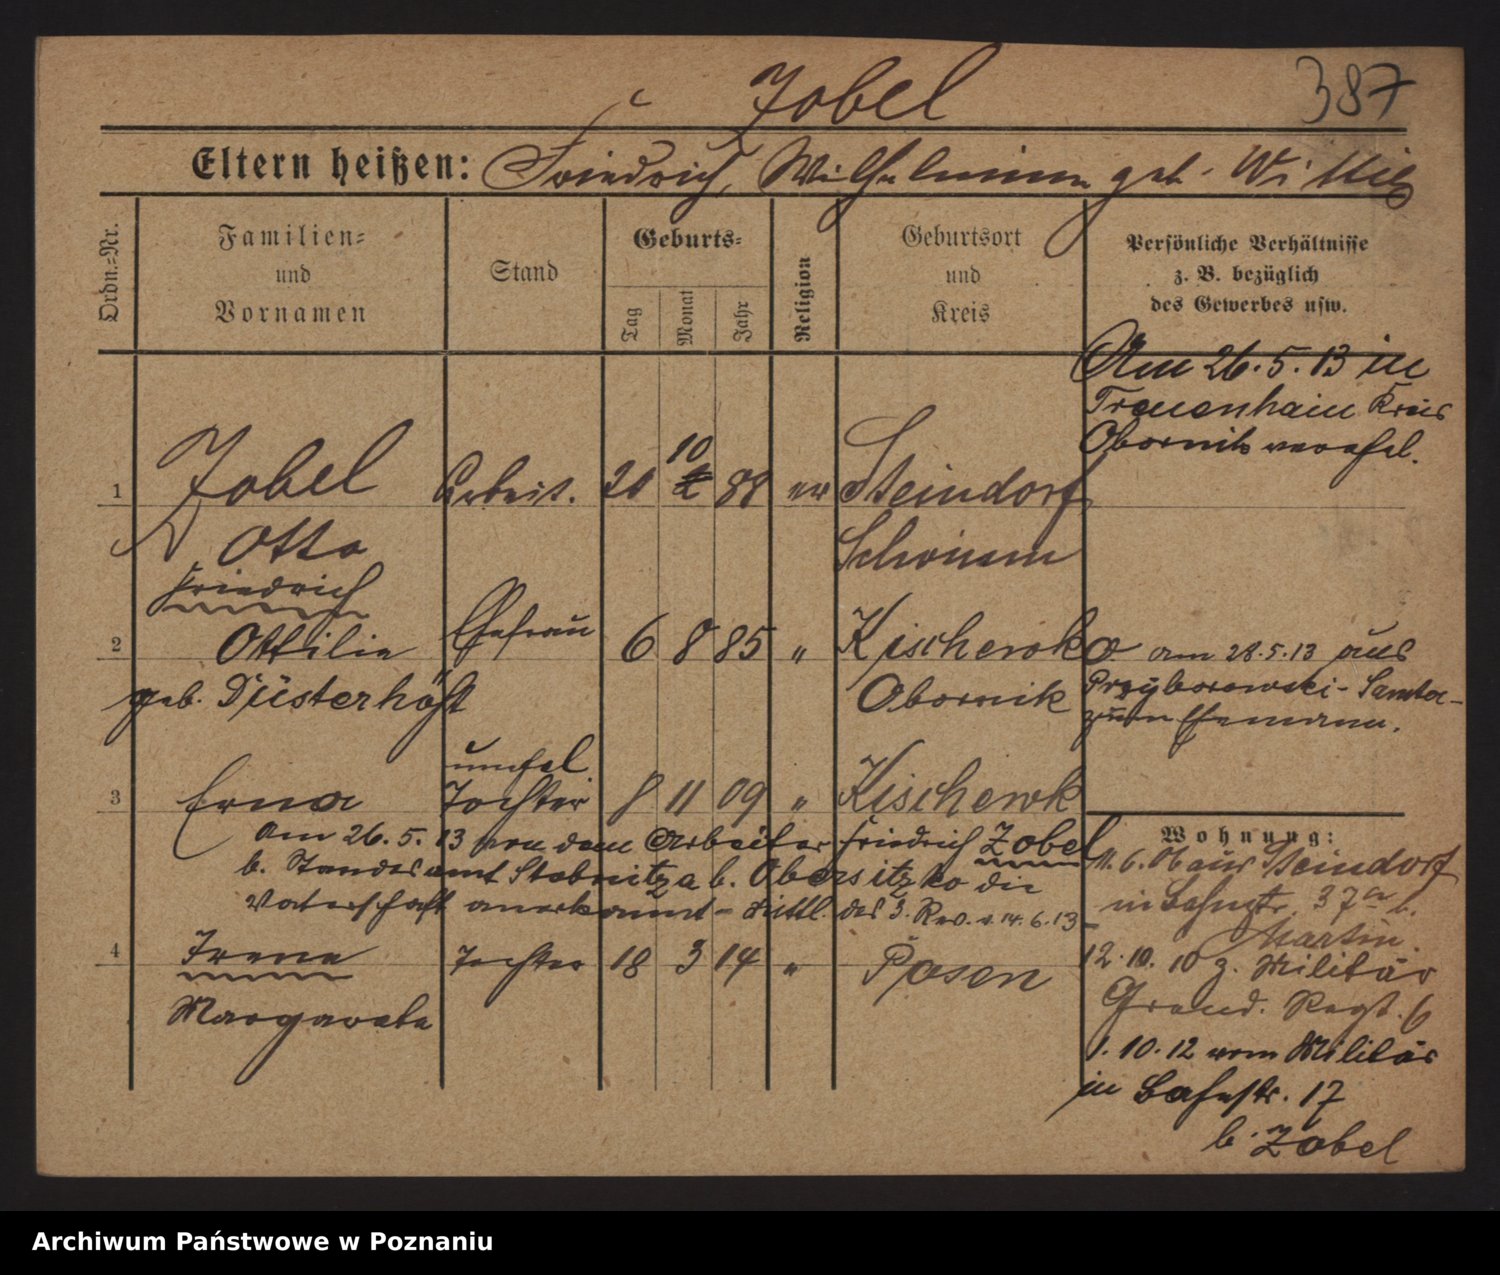 Zobel
387
Eltern heißen: Friedrich, Wilhelmine geb. Wittig
Ordn.-Nr.
Familien- und Vornamen
Stand
Geburts-
Tag
Monat
Jahr
Religion
Geburtsort und Kreis
Persönliche Verhältnisse z. B. bezüglich des Gewerbes usw.
Am 26.5.13 in
Treuenhain Kreis
Obornik verehel.
1 Zobel Arbeit. 10 88 ev Steindorf
Otto Schrimm
Friedrich
2 Ottilie Ehefrau 6 8 85 " Kischewk
geb. Düsterhöft Obornik
am 28.5.13 aus
Przyborowski - Samter
zum Ehemann.
unehel
3 Erna Tochter 8 11 09 " Kischewk
Am 26.5.13 von dem Arbeiter Friedrich Zobel
b. Standesamt Stobnitza b. Obersitzko die
Vaterschaft anerkannt - des 3. Rev. v. 14.6.13 -
4 Irene Tochter 18 3 14 " Posen
Margarete
Wohnung:
aus Steindorf
in 37a b.
Martin.
12.10.10 z. Militär
Grenad. Regt. 6
1.10.12 vom Militär
in 17
b. Zobel
Archiwum Państwowe w Poznaniu